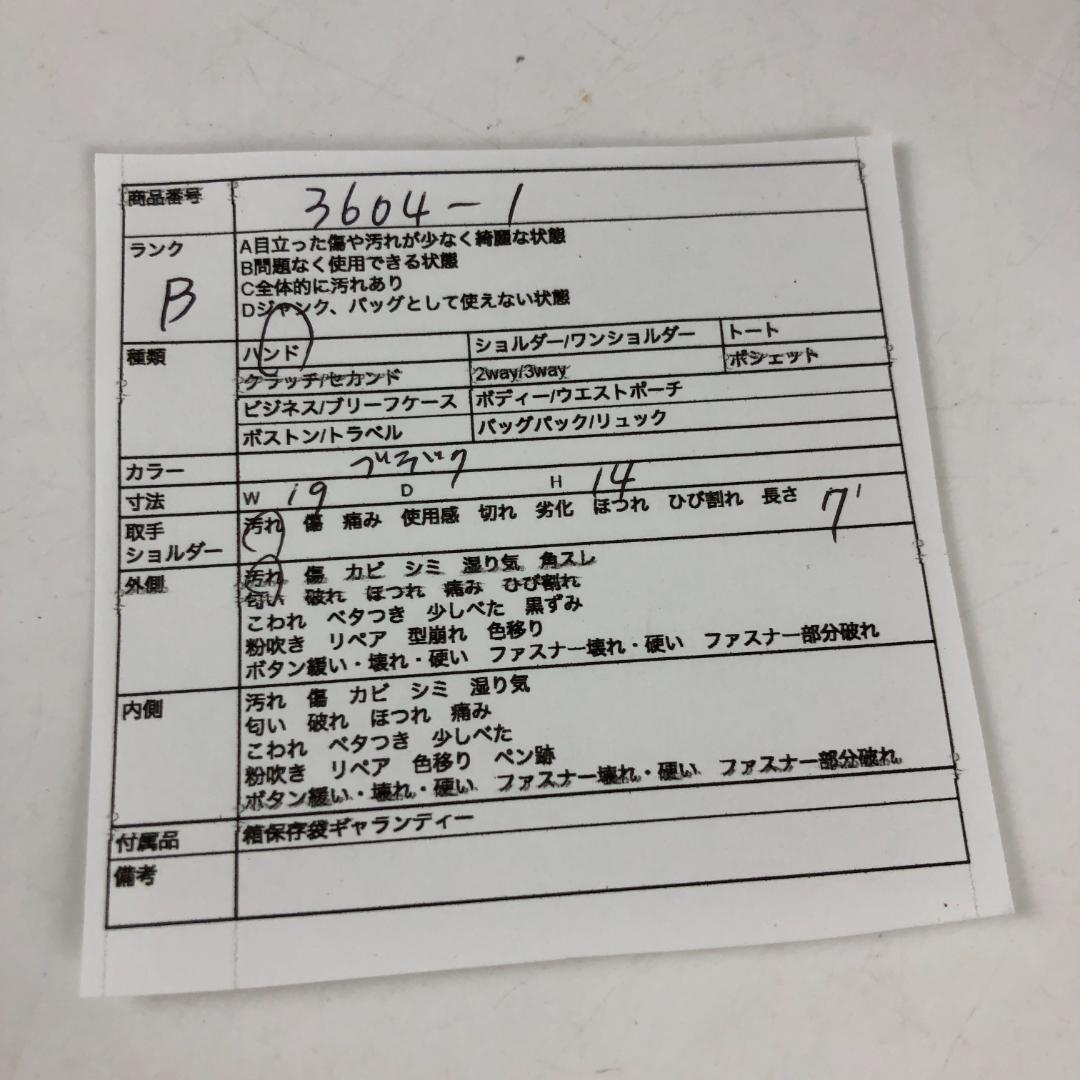 商品番号 3604-1
ランク B
A目立った傷や汚れが少なく綺麗な状態
B問題なく使用できる状態
C全体的に汚れあり
Dジャンク、バッグとして使えない状態
種類 ハンド ショルダー/ワンショルダー トート
クラッチ/セカンド 2way/3way ポシェット
ビジネス/ブリーフケース ボディー/ウエストポーチ
ボストン/トラベル バッグパック/リュック
カラー ブラック
寸法 W 19 D H 14
取手 汚れ 傷 痛み 使用感 切れ 劣化 ほつれ ひび割れ 長さ 7
ショルダー
外側 汚れ 傷 カビ シミ 湿り気 角スレ
匂い 破れ ほつれ 痛み ひび割れ
こわれ ベタつき 少しべた 黒ずみ
粉吹き リペア 型崩れ 色移り
ボタン緩い・壊れ・硬い ファスナー壊れ・硬い ファスナー部分破れ
内側 汚れ 傷 カビ シミ 湿り気
匂い 破れ ほつれ 痛み
こわれ ベタつき 少しべた
粉吹き リペア 色移り ペン跡
ボタン緩い・壊れ・硬い ファスナー壊れ・硬い ファスナー部分破れ
付属品 箱保存袋ギャランティー
備考